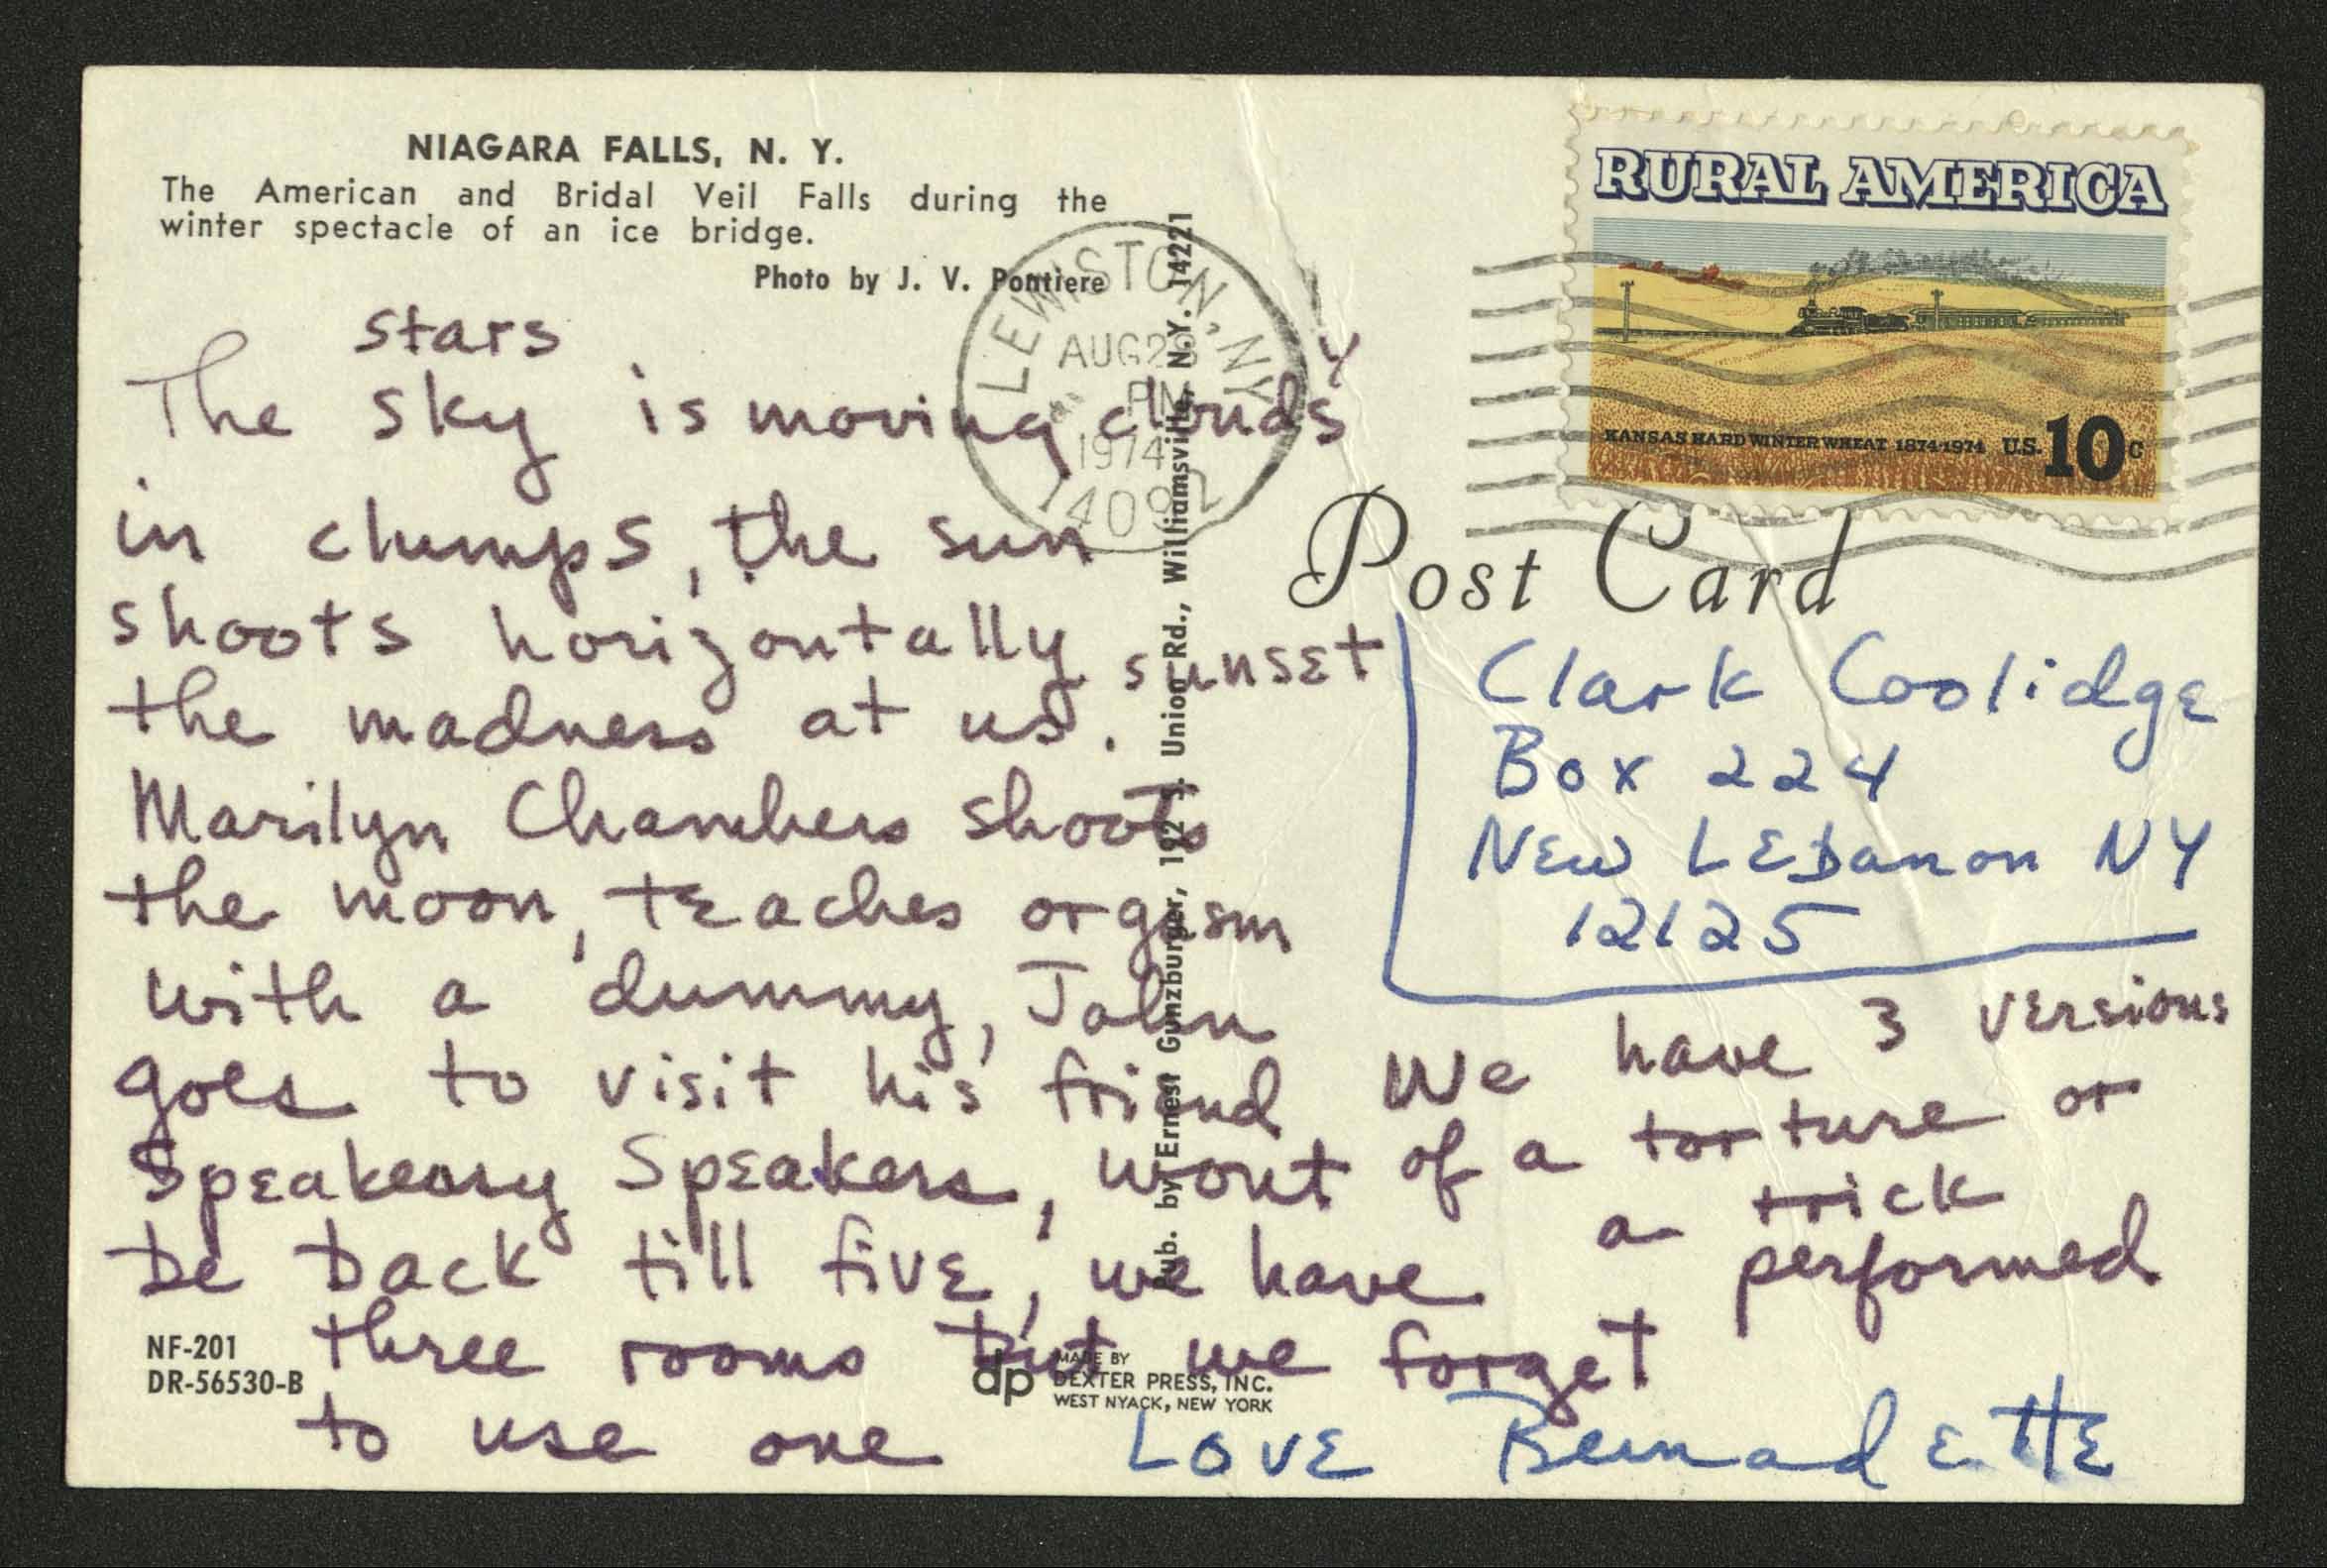 NIAGARA FALLS, N. Y.
The American and Bridal Veil Falls during the
winter spectacle of an ice bridge.
Photo by J. V. Pontiere
stars
The sky is moving clouds
y
in clumps, the sun
shoots horizontally
sunset
the madness at us.
Marilyn Chambers shoots
the moon, teaches orgasm
with a dummy, John
goes to visit his friend
Speakeasy Speakers, wont
be back till five, we have
three rooms but we forget
to use one
We have 3 versions
of a torture or
a trick
performed
Love Bernadette
LEWISTON, NY
AUG 28
PM
1974
14092
RURAL AMERICA
KANSAS HARD WINTER WHEAT 1874-1974 U.S. 10c
Post Card
Clark Coolidge
Box 224
New Lebanon NY
12125
Pub. by Ernest Gunzburger, 1922 Union Rd., Williamsville, N. Y. 14221
NF-201
DR-56530-B
dp
MADE BY
DEXTER PRESS, INC.
WEST NYACK, NEW YORK